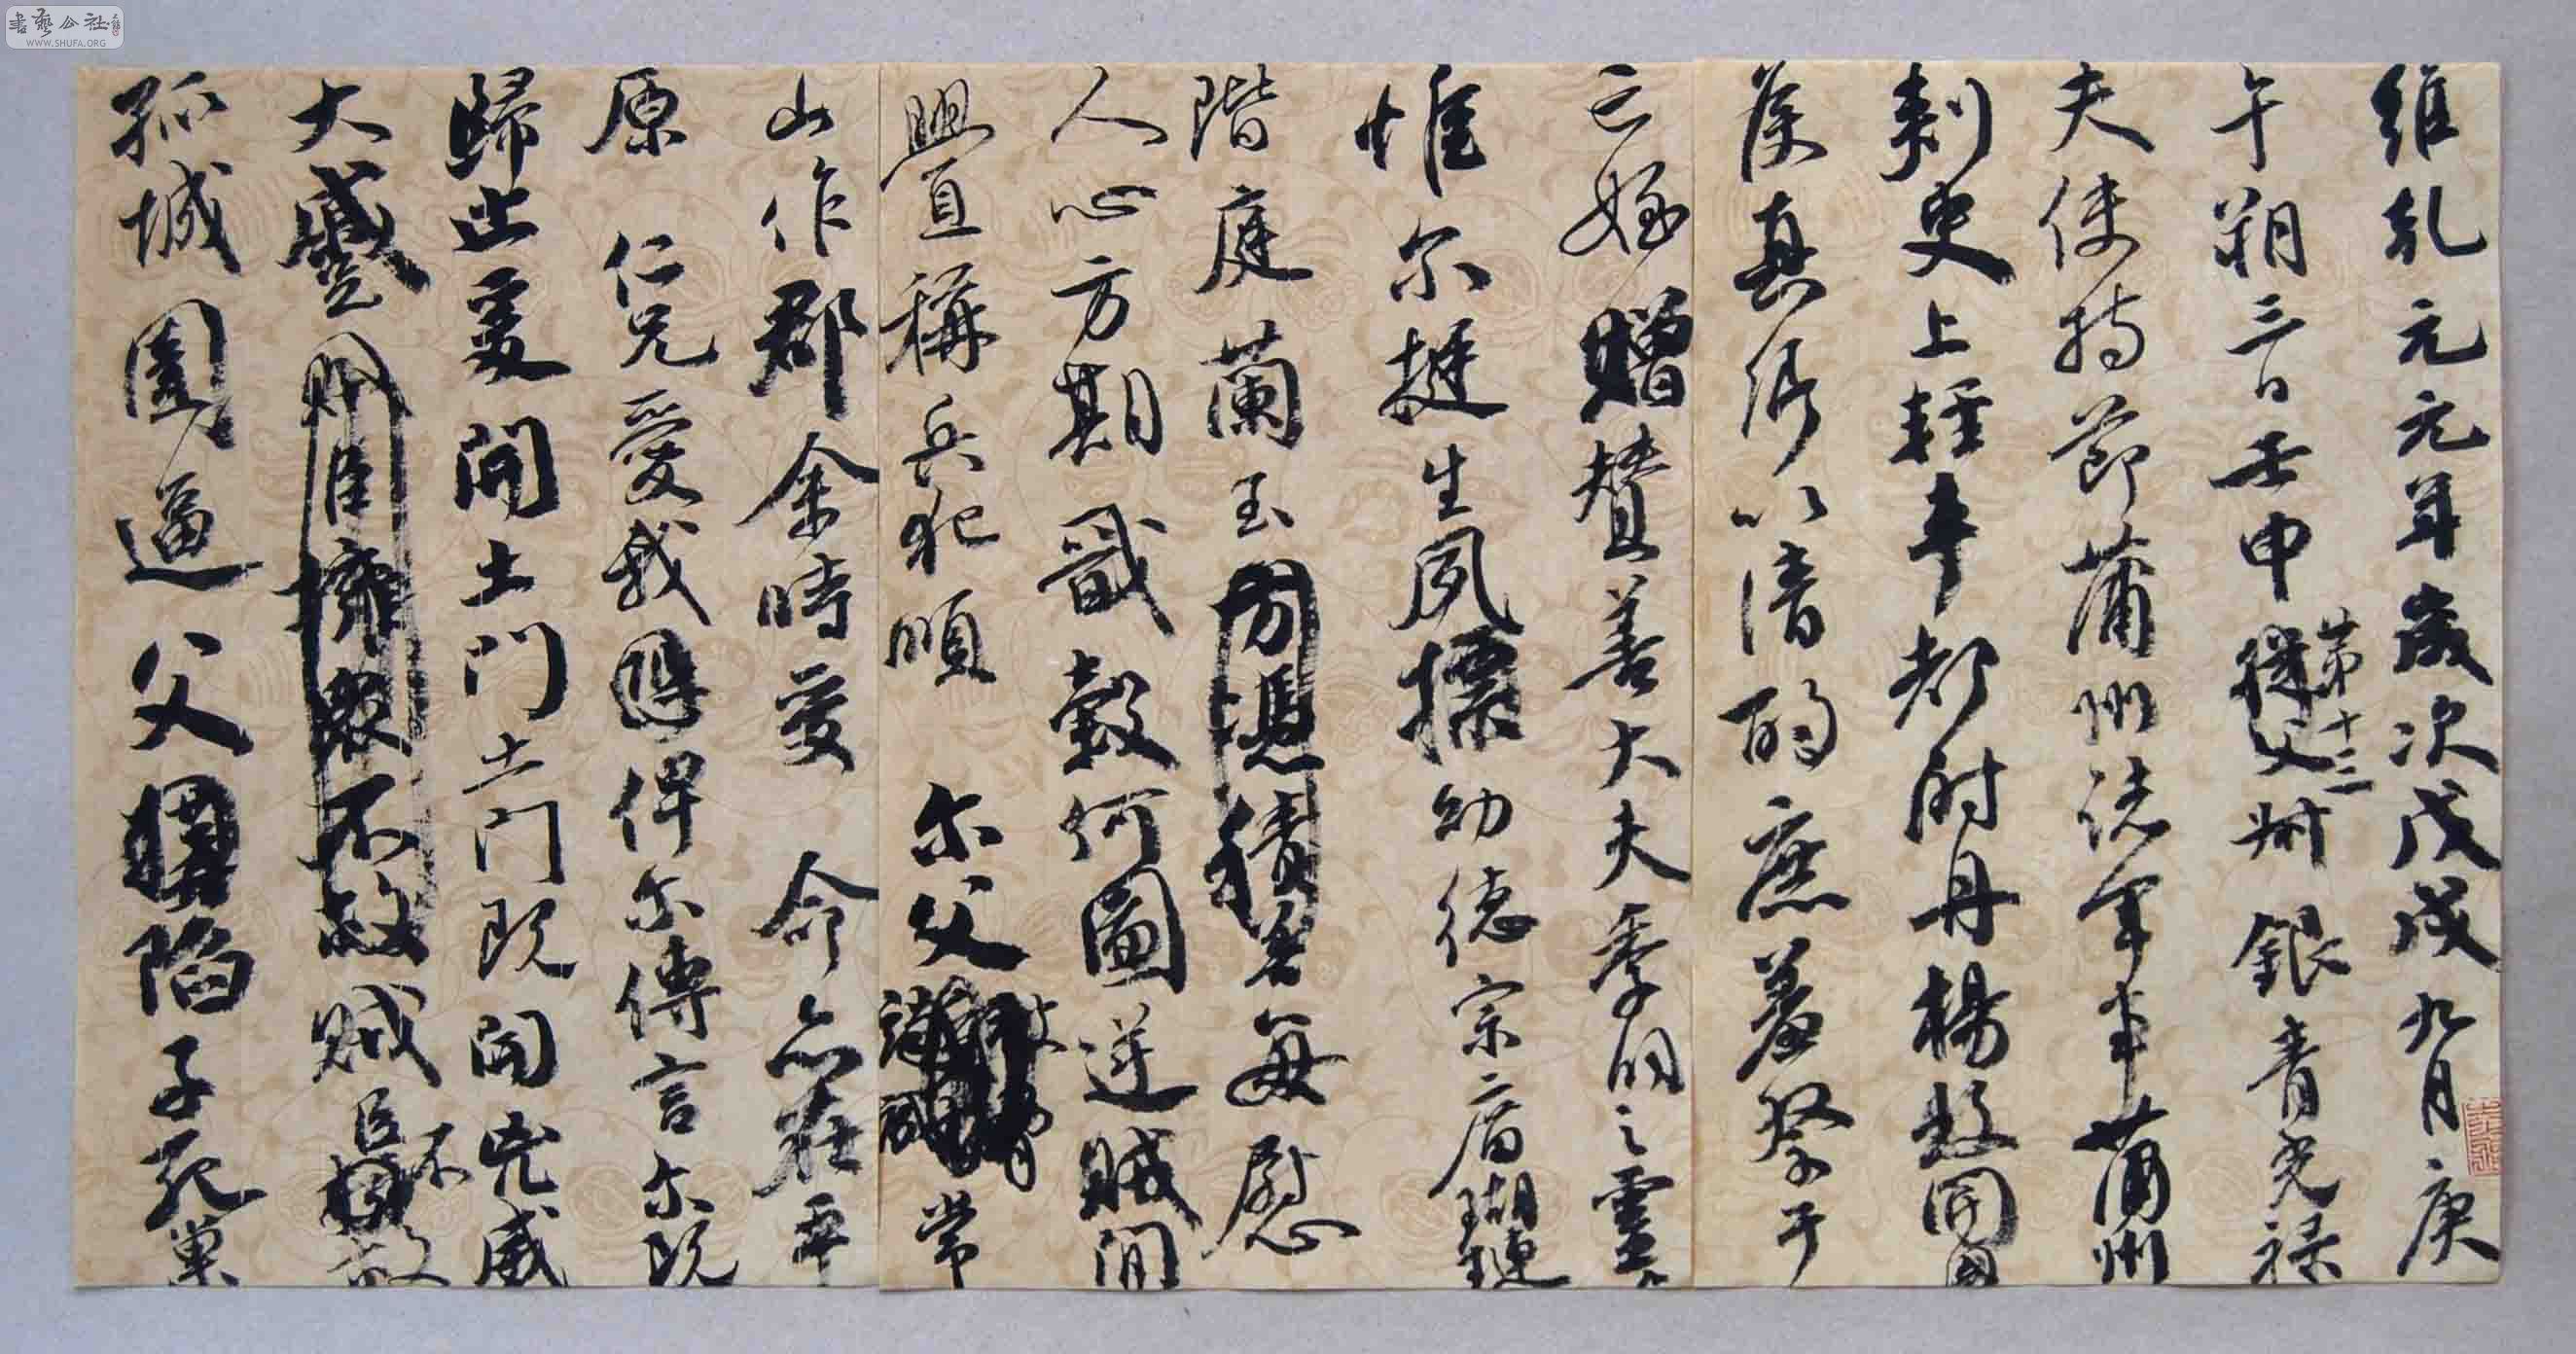 維乾元元年歲次戊戌九月庚
午朔三日壬申第十三叔銀青光禄
夫使持節蒲州諸軍事蒲州
刺史上輕車都尉丹楊縣開國
侯真卿以清酌庶羞祭于
亡姪贈贊善大夫季明之靈
惟尔挺生夙標幼德宗廟瑚璉
階庭蘭玉方憑積善每慰
人心方期戩穀何圖逆賊閒
釁稱兵犯順尔父常
山作郡余時受命亦在平
原仁兄愛我俾尔傳言尔既
歸止爰開土門土門既開兇威
大蹙賊臣擁衆不救賊臣不救
孤城圍逼父陷子死巢
書藝公社
WWW.SHUFA.ORG